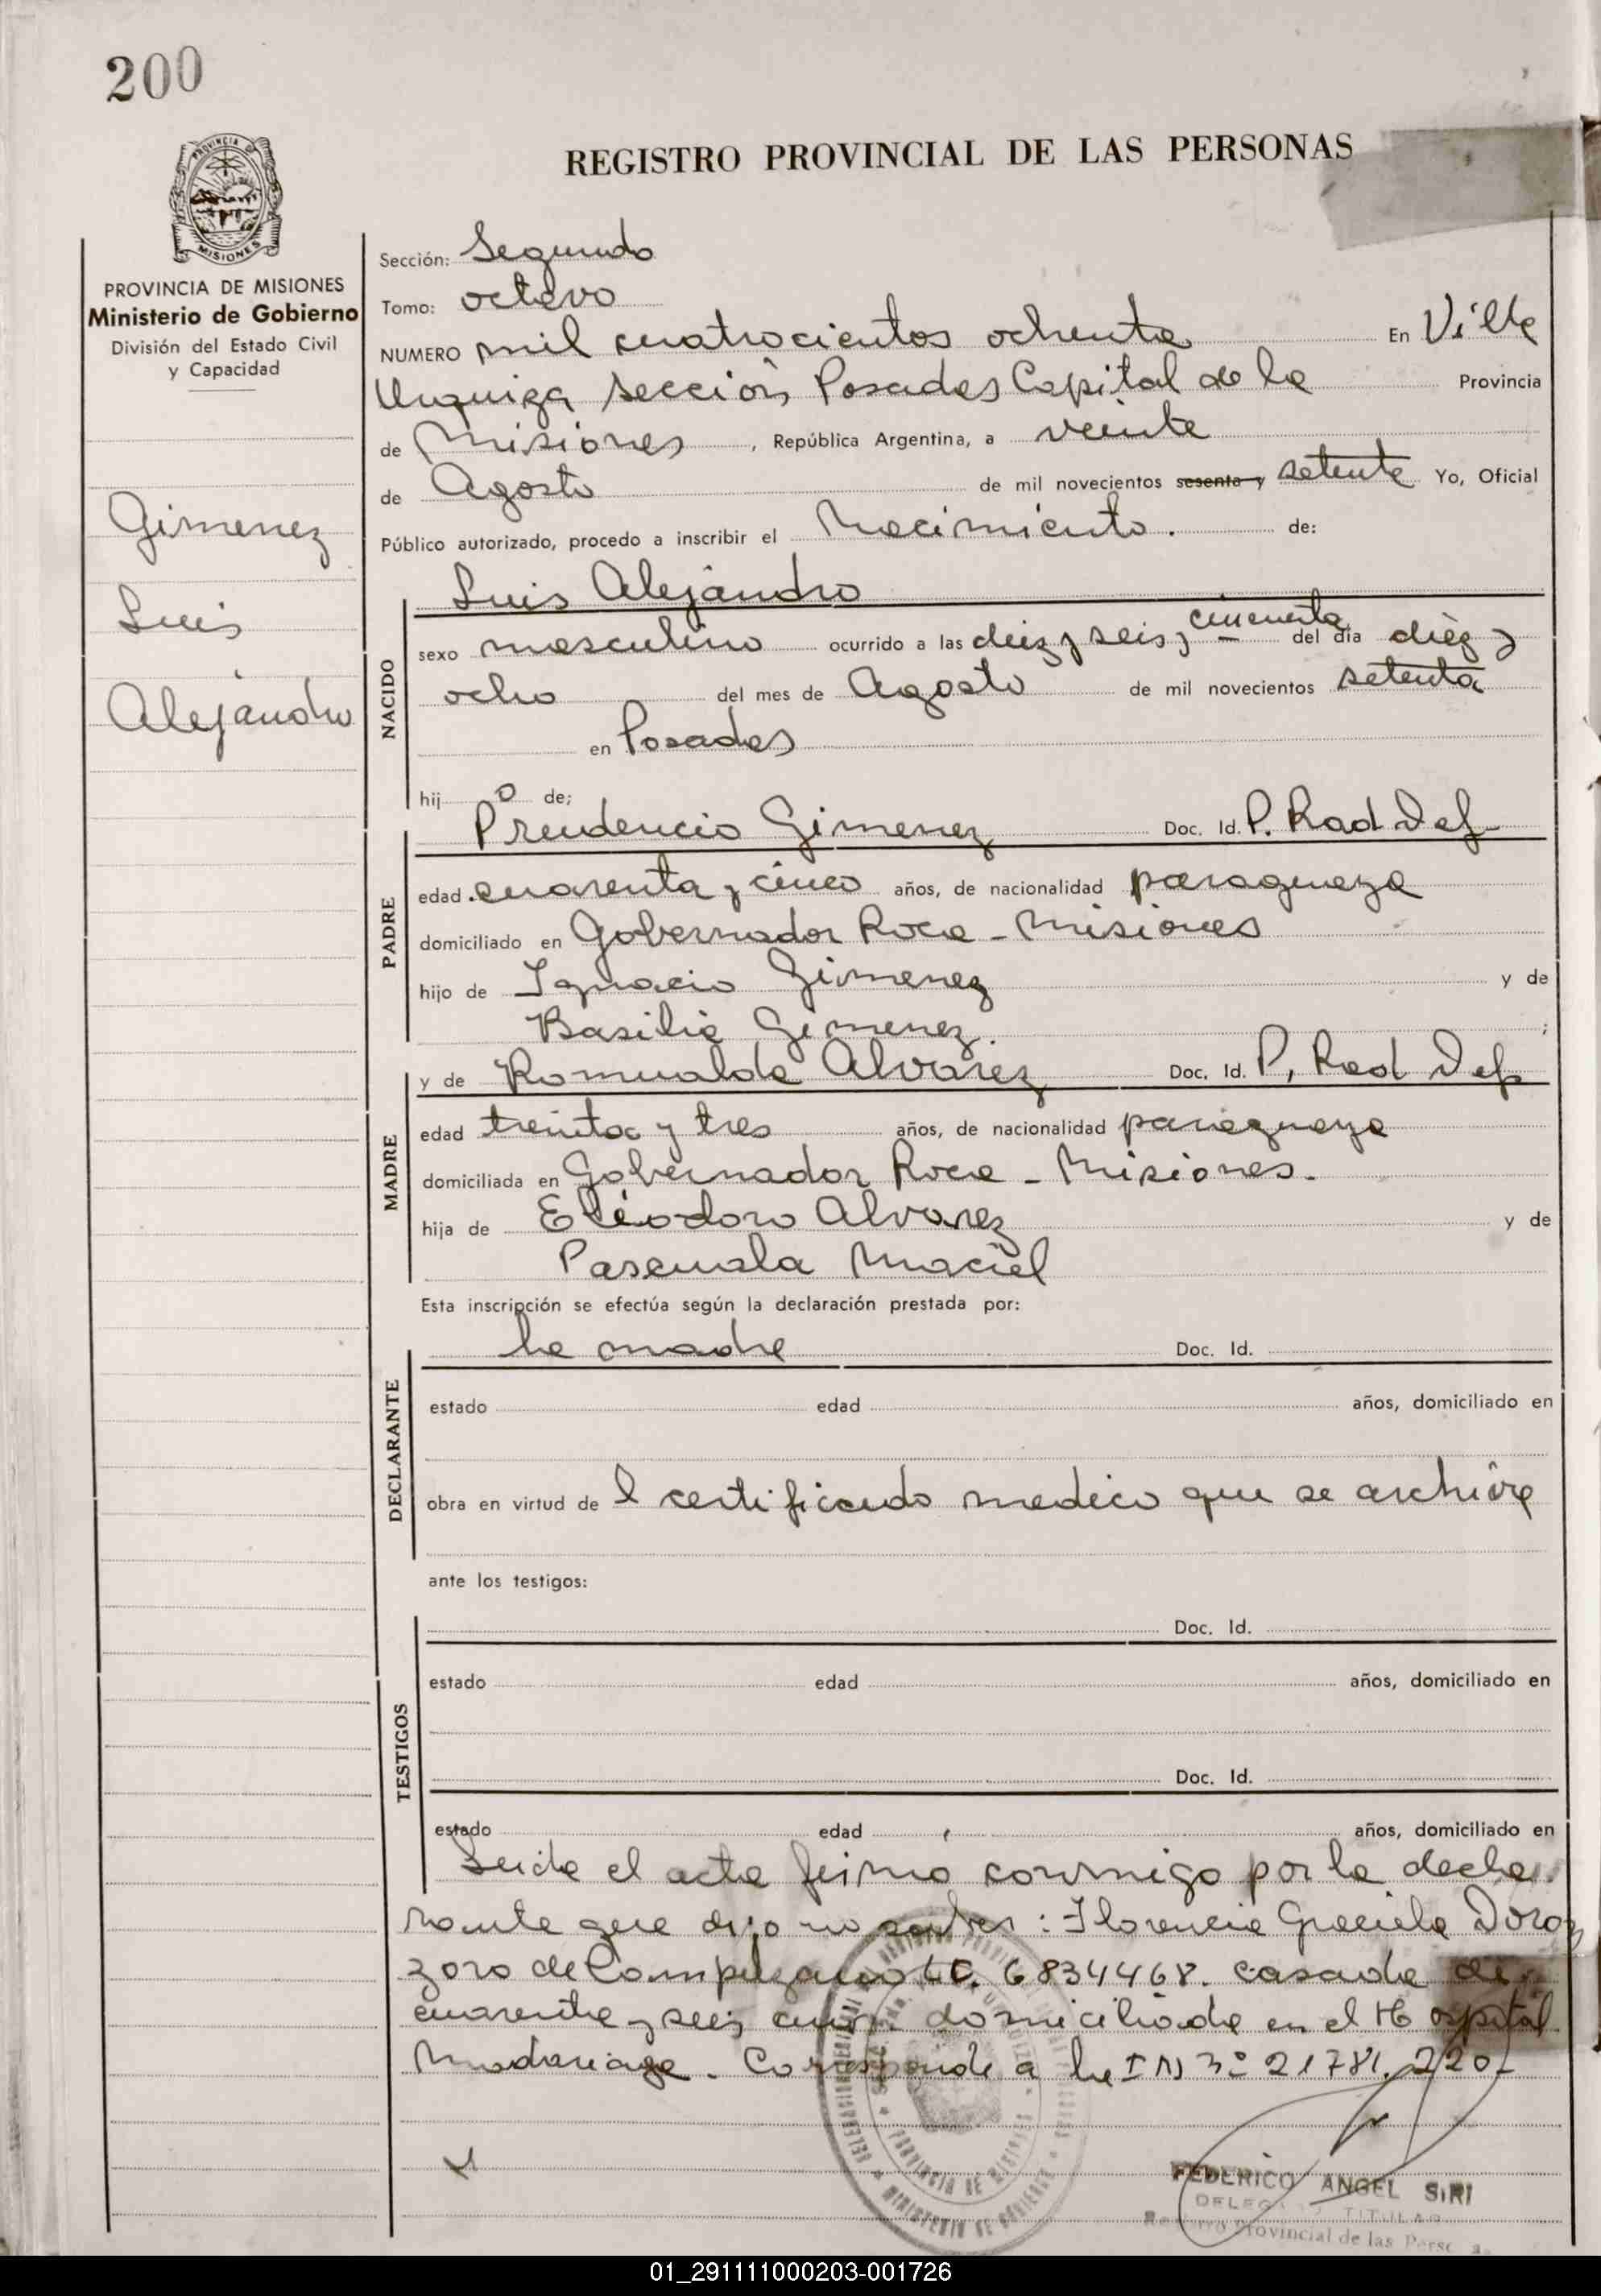 200
REGISTRO PROVINCIAL DE LAS PERSONAS
PROVINCIA DE MISIONES
Ministerio de Gobierno
División del Estado Civil
y Capacidad
Gimenez
Luis
Alejandro
Sección: Segundo
Tomo: octavo
NUMERO mil cuatrocientos ochenta En Villa
Urquiza sección Posadas Capital de la Provincia
de Misiones, República Argentina, a veinte
de Agosto de mil novecientos sesenta y setenta Yo, Oficial
Público autorizado, procedo a inscribir el Nacimiento. de:
NACIDO
Luis Alejandro
sexo masculino ocurrido a las diez y seis y cincuenta del día diez y
ocho del mes de Agosto de mil novecientos setenta
en Posadas
hijo de;
PADRE
Prudencio Gimenez Doc. Id. P. Rad Def
edad cuarenta y cinco años, de nacionalidad paraguaya
domiciliado en Gobernador Roca - Misiones
hijo de Ignacio Gimenez y de
Basilia Gimenez;
MADRE
y de Romualda Alvarez Doc. Id. P. Rad Def
edad treinta y tres años, de nacionalidad paraguaya
domiciliada en Gobernador Roca - Misiones.
hija de Eleodoro Alvarez y de
Pascuala Maciel
Esta inscripción se efectúa según la declaración prestada por:
DECLARANTE
la madre Doc. Id.
estado edad años, domiciliado en
obra en virtud de l certificado medico que se archiva
ante los testigos:
TESTIGOS
Doc. Id.
estado edad años, domiciliado en
Doc. Id.
estado edad años, domiciliado en
Leida el acta firma conmigo por la decla
rante que dijo no saber: Florencia Graciela
de LC. 6834468. casada de
cuarenta y seis años domiciliada en el Hospital
Madariaga. Corresponde a la I N 3º 21781.220
FEDERICO ANGEL SIRI
DELEGADO TITULAR
Registro Provincial de las Personas
PROVINCIA DE MISIONES
MINISTERIO DE GOBIERNO
01_291111000203-001726